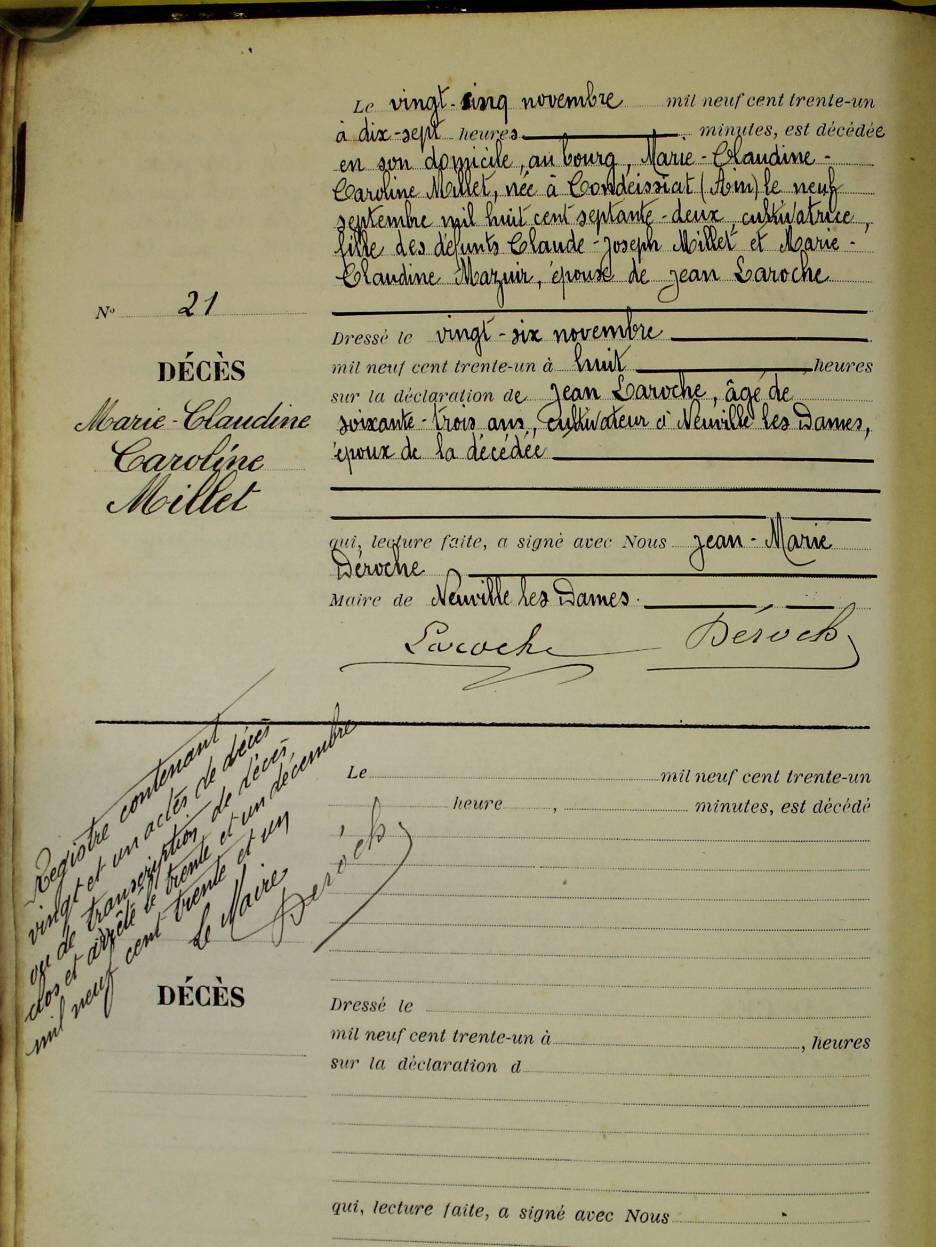 Le vingt-cinq novembre mil neuf cent trente-un
à dix-sept heures minutes, est décédée
en son domicile, au bourg, Marie-Claudine-
Caroline Millet, née à Condeissiat (Ain) le neuf
septembre mil huit cent septante-deux, cultivatrice,
fille des défunts Claude-Joseph Millet et Marie-
Claudine Mazuir, épouse de Jean Laroche
N° 21
DÉCÈS
Marie-Claudine
Caroline
Millet
Dressé le vingt-six novembre
mil neuf cent trente-un à huit heures
sur la déclaration de Jean Laroche, âgé de
soixante-trois ans, cultivateur à Neuville les Dames,
époux de la décédée
qui, lecture faite, a signé avec Nous Jean-Marie
Déroche
Maire de Neuville les Dames.
Laroche Déroch
Registre contenant
vingt et un actes de décès
ou de transcription de décès
clos et arrêté le trente et un décembre
mil neuf cent trente et un
Le Maire
Déroch
Le mil neuf cent trente-un
heure , minutes, est décédé
DÉCÈS
Dressé le
mil neuf cent trente-un à , heures
sur la déclaration d
qui, lecture faite, a signé avec Nous